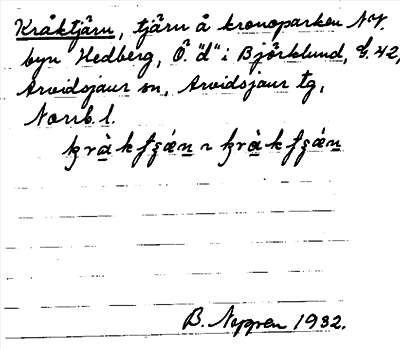 Kråktjärn, tjärn å kronoparken N.V.
byn Hedberg, Ö. "d" i Björklund, G. 42,
Arvidsjaur sn, Arvidsjaur tg,
Norrb. l.
B. Nygren 1932.